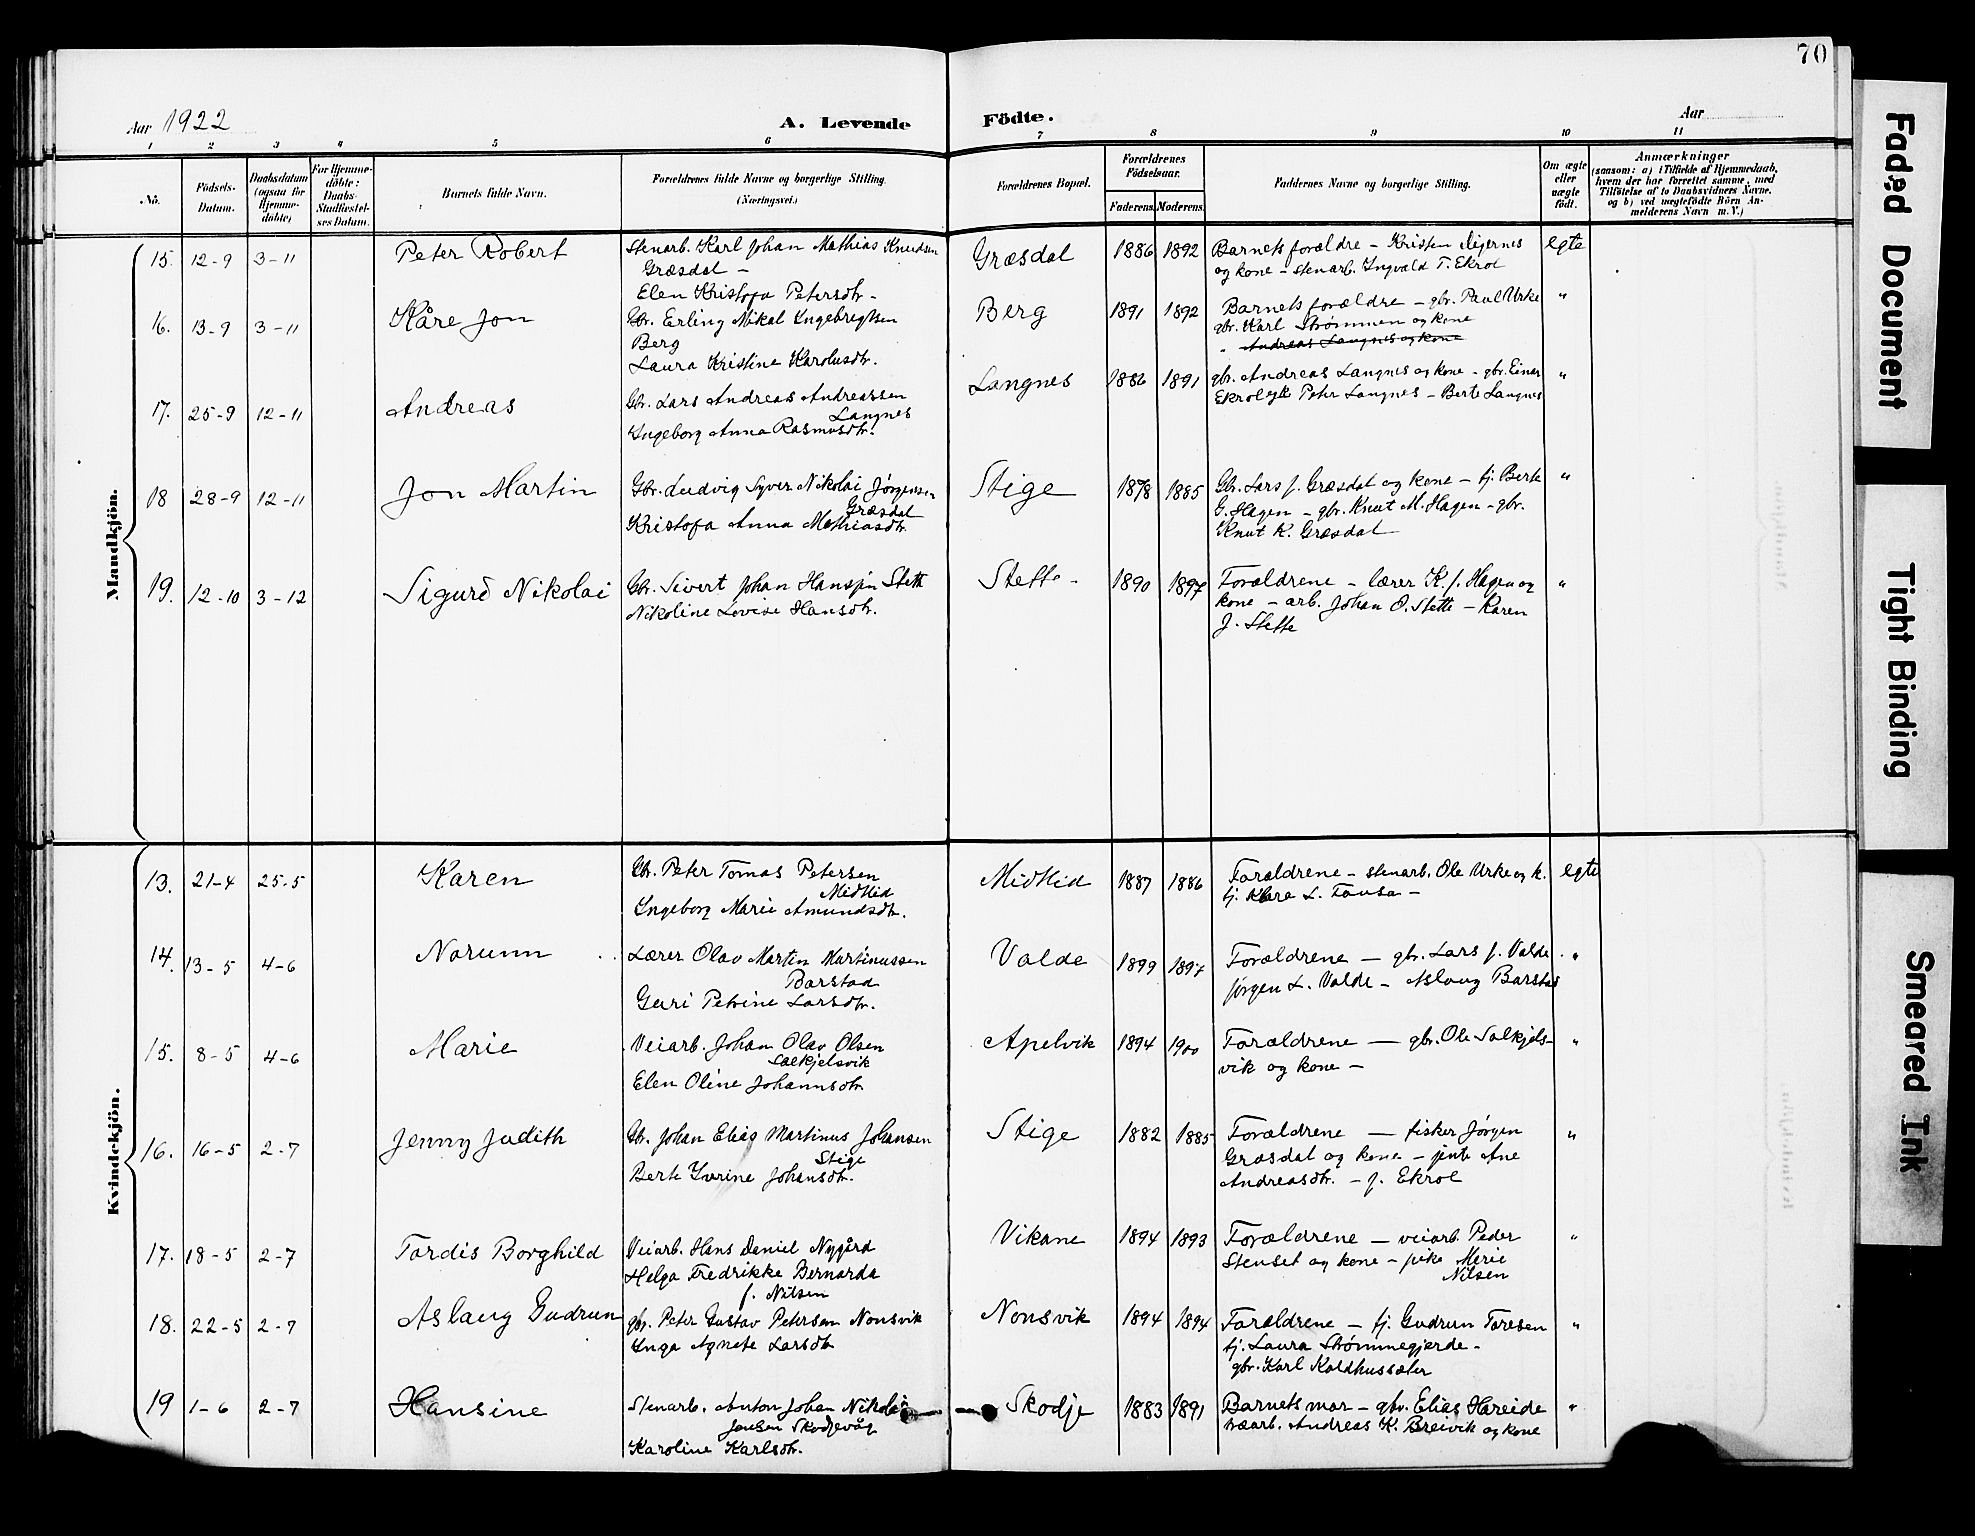 70
Aar 1922
A. Levende Födte.
Aar
1 2 3 4 5 6 7 8 9 10 11
No.
Födsels-Datum.
Daabsdatum (ogsaa for Hjemme-döbte)
For Hjemme-döbte: Daabs-Stadfæstel-ses Datum.
Barnets fulde Navn.
Forældrenes fulde Navne og borgerlige Stilling. (Næringsvei.)
Forældrenes Bopæl.
Forældrenes Födselsaar.
Faderens. Moderens.
Faddernes Navne og borgerlige Stilling.
Om ægte eller uægte født.
Anmærkninger
(saasom: a) i Tilfælde af Hjemmedaab,
hvem der har forrettet samme, med
Tilföielse af to Daabsvidners Navne.
og b) ved uægtefödte Börn An-
melderens Navn m. V.)
Mandkjön.
15. 12-9 3-11 Peter Robert
Stenarb. Karl Johan Mathias Knudsen
Græsdal –
Elen Kristofa Petersdtr.
Græsdal 1886 1892
Barnets forældre – Kristen
og kone – stenarb. Ingvald T. Ekrol
egte
16. 13-9 3-11 Kåre Jon
Gbr. Erling Nikal Ingebregtsen
Berg
Laura Kristine Karolusdtr.
Berg 1891 1892
Barnets forældre – gbr. Paul Urke
gbr. Karl Strømmen og kone
" Andreas Langnes og kone
"
17. 25-9 12-11 Andreas
Gbr. Lars Andreas Andreassen
Langnes
Ingeborg Anna Rasmusdtr.
Langnes 1886 1891
gbr. Andreas Langnes og kone – gbr. Einar
Ekrol Peter Langnes – Berte Langnes
"
18 28-9 12-11 Jon Martin
Gbr. Ludvig Syver Nikolai Jørgensen
Græsdal
Kristofa Anna Mathiasdtr.
Stige 1878 1885
Gbr. Lars J. Græsdal og kone – tj. Berte
G. Hagen – gbr. Knut M. Hagen – gbr.
Knut K. Græsdal
"
19. 12-10 3-12 Sigurd Nikolai
Gbr. Sivert Johan Hansen Stette
Nikoline Lovise Hansdtr.
Stette – 1890 1897
Forældrene – lærer K. J. Hagen og
kone – arb. Johan O. Stette – Karen
J. Stette
"
Kvindekjön.
13. 21-4 25-5 Karen
Gbr. Peter Tomas Petersen
Midtlid
Ingeborg Marie Amundsdtr.
Midtlid 1887 1886
Forældrene – stenarb. Ole Urke og k.
tj. Klara L. Tausa –
egte
14. 13-5 4-6 Norunn
Lærer Olav Martin Martinussen
Barstad
Guri Petrine Larsdtr.
Valde 1899 1897
Forældrene – gbr. Lars J. Valde
Jørgen L. Valde – Aslaug Barstad
"
15. 8-5 4-6 Marie
Veiarb. Johan Olav Olsen
Solkjelsvik
Elen Oline Johannsdtr.
Apelvik 1894 1900
Forældrene – gbr. Ole Solkjels-
vik og kone –
"
16. 16-5 2-7 Jenny Judith
Gbr. Johan Elias Martinus Johansen
Stige
Berte Iverine Johansdtr.
Stige 1882 1885
Forældrene – fisker Jørgen
Græsdal og kone – jente Ane
Andreasdtr. – J. Ekrol
"
17. 18-5 2-7 Tordis Borghild
Veiarb. Hans Daniel Nygård
Helga Fredrikke Bernarda
f. Nilsen
Vikane 1894 1893
Forældrene – veiarb. Peder
Stenset og kone – pike Merie
Nilsen
"
18. 22-5 2-7 Aslaug Gudrun
gbr. Peter Gustav Petersen Nonsvik
Inga Agnete Larsdtr
Nonsvik 1894 1894
Forældrene – tj. Gudrun Toresen
tj. Laura Strømmegjerde –
gbr. Karl Koldhussæter
"
19 1-6 2-7 Hansine
Stenarb. Anton Johan Nikolai
Jonsen Skodjevåg
Karoline Karlsdtr.
Skodje 1883 1891
Barnets mor – gbr. Elias Hareide
væarb. Andreas K. Breivik og kone
"
Faded Document
Tight Binding
Smeared Ink